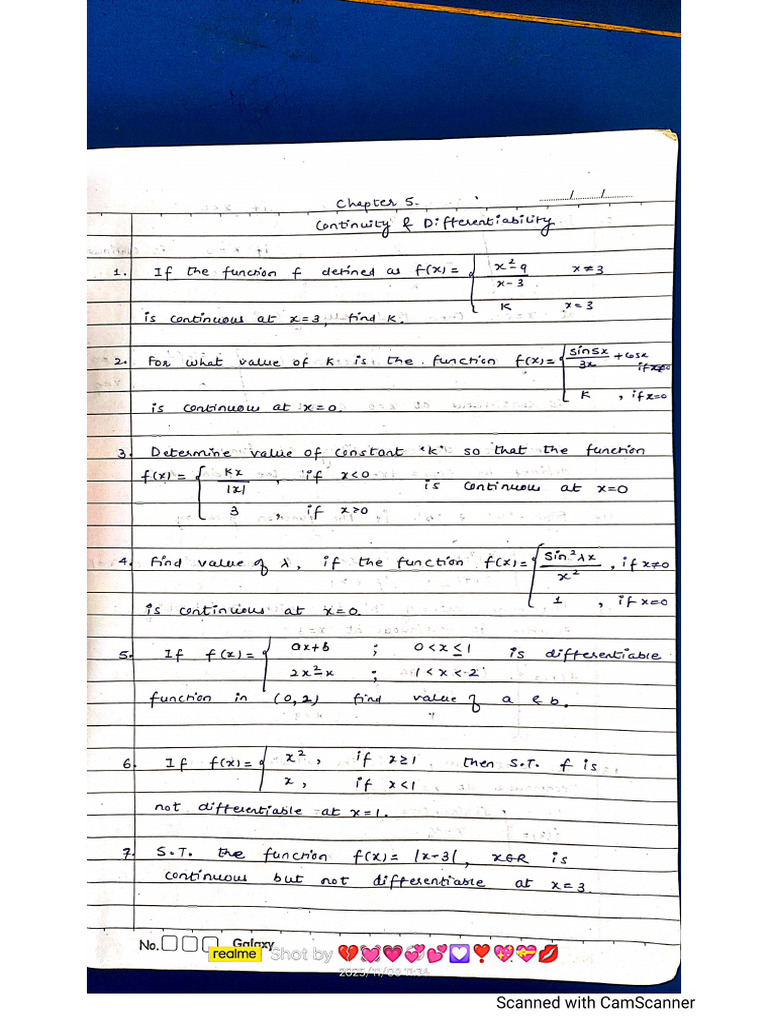 Chapter 5.
/ /
Continuity & Differentiability
1. If the function f defined as f(x) = { x²-9 / x-3   x≠3
K   x=3
is continuous at x=3, find K.
2. For what value of K is the function f(x) = { sin5x / 3x + cosx   if x≠0
K , if x=0
is continuous at x=0.
3. Determine value of constant 'K' so that the function
f(x) = { Kx / |x| , if x<0   is continuous at x=0
3 , if x≥0
4. Find value of λ, if the function f(x) = { Sin²λx / x² , if x≠0
1 , if x=0
is continuous at x=0.
5. If f(x) = { ax+b ; 0<x≤1   is differentiable
2x²-x ; 1<x<2
function in (0,2) find value of a & b.
6. If f(x) = { x² , if x≥1   then S.T. f is
x , if x<1
not differentiable at x=1.
7. S.T. the function f(x) = |x-3|, x∈R is
continuous but not differentiable at x=3.
No. Galaxy
realme Shot by 💔💓❤💞💕💟❣💖💝💋
Scanned with CamScanner